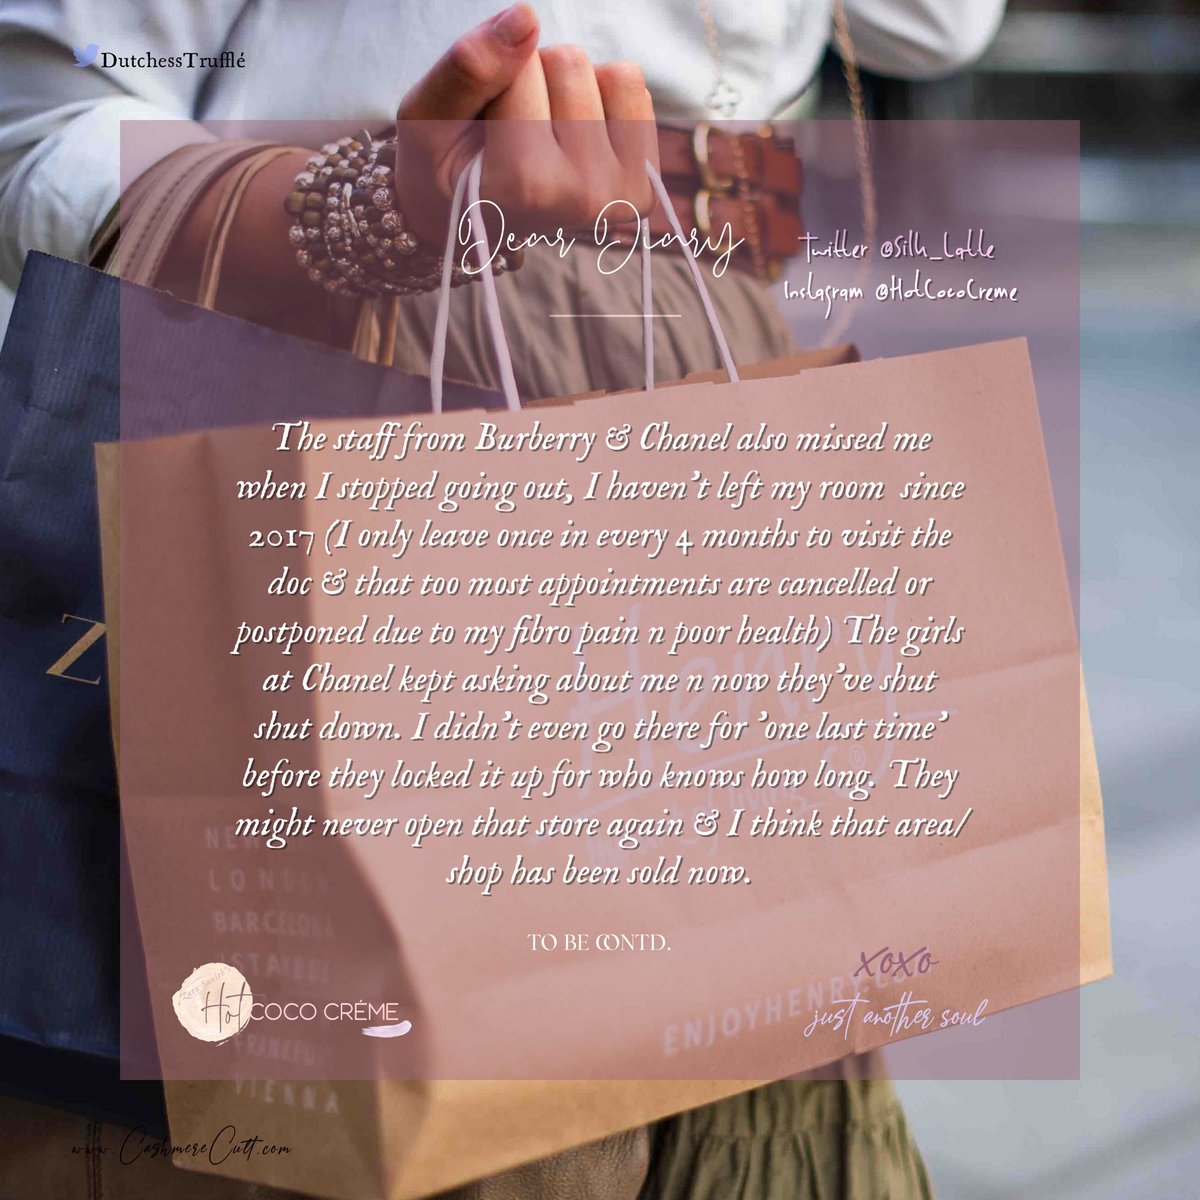 DutchessTrufflé
Dear Diary
Twitter @Silk_Latte
Instagram @HotCocoCreme
The staff from Burberry & Chanel also missed me
when I stopped going out, I haven't left my room since
2017 (I only leave once in every 4 months to visit the
doc & that too most appointments are cancelled or
postponed due to my fibro pain n poor health) The girls
at Chanel kept asking about me n now they've shut
shut down. I didn't even go there for 'one last time'
before they locked it up for who knows how long. They
might never open that store again & I think that area/
shop has been sold now.
TO BE CONTD.
Z
Henry
NEW
LONDON
BARCELONA
ISTANBUL
FRANKFURT
VIENNA
ENJOYHENRY.CO
Hot COCO CRÉME
xoxo
just another soul
www.CashmereCult.com